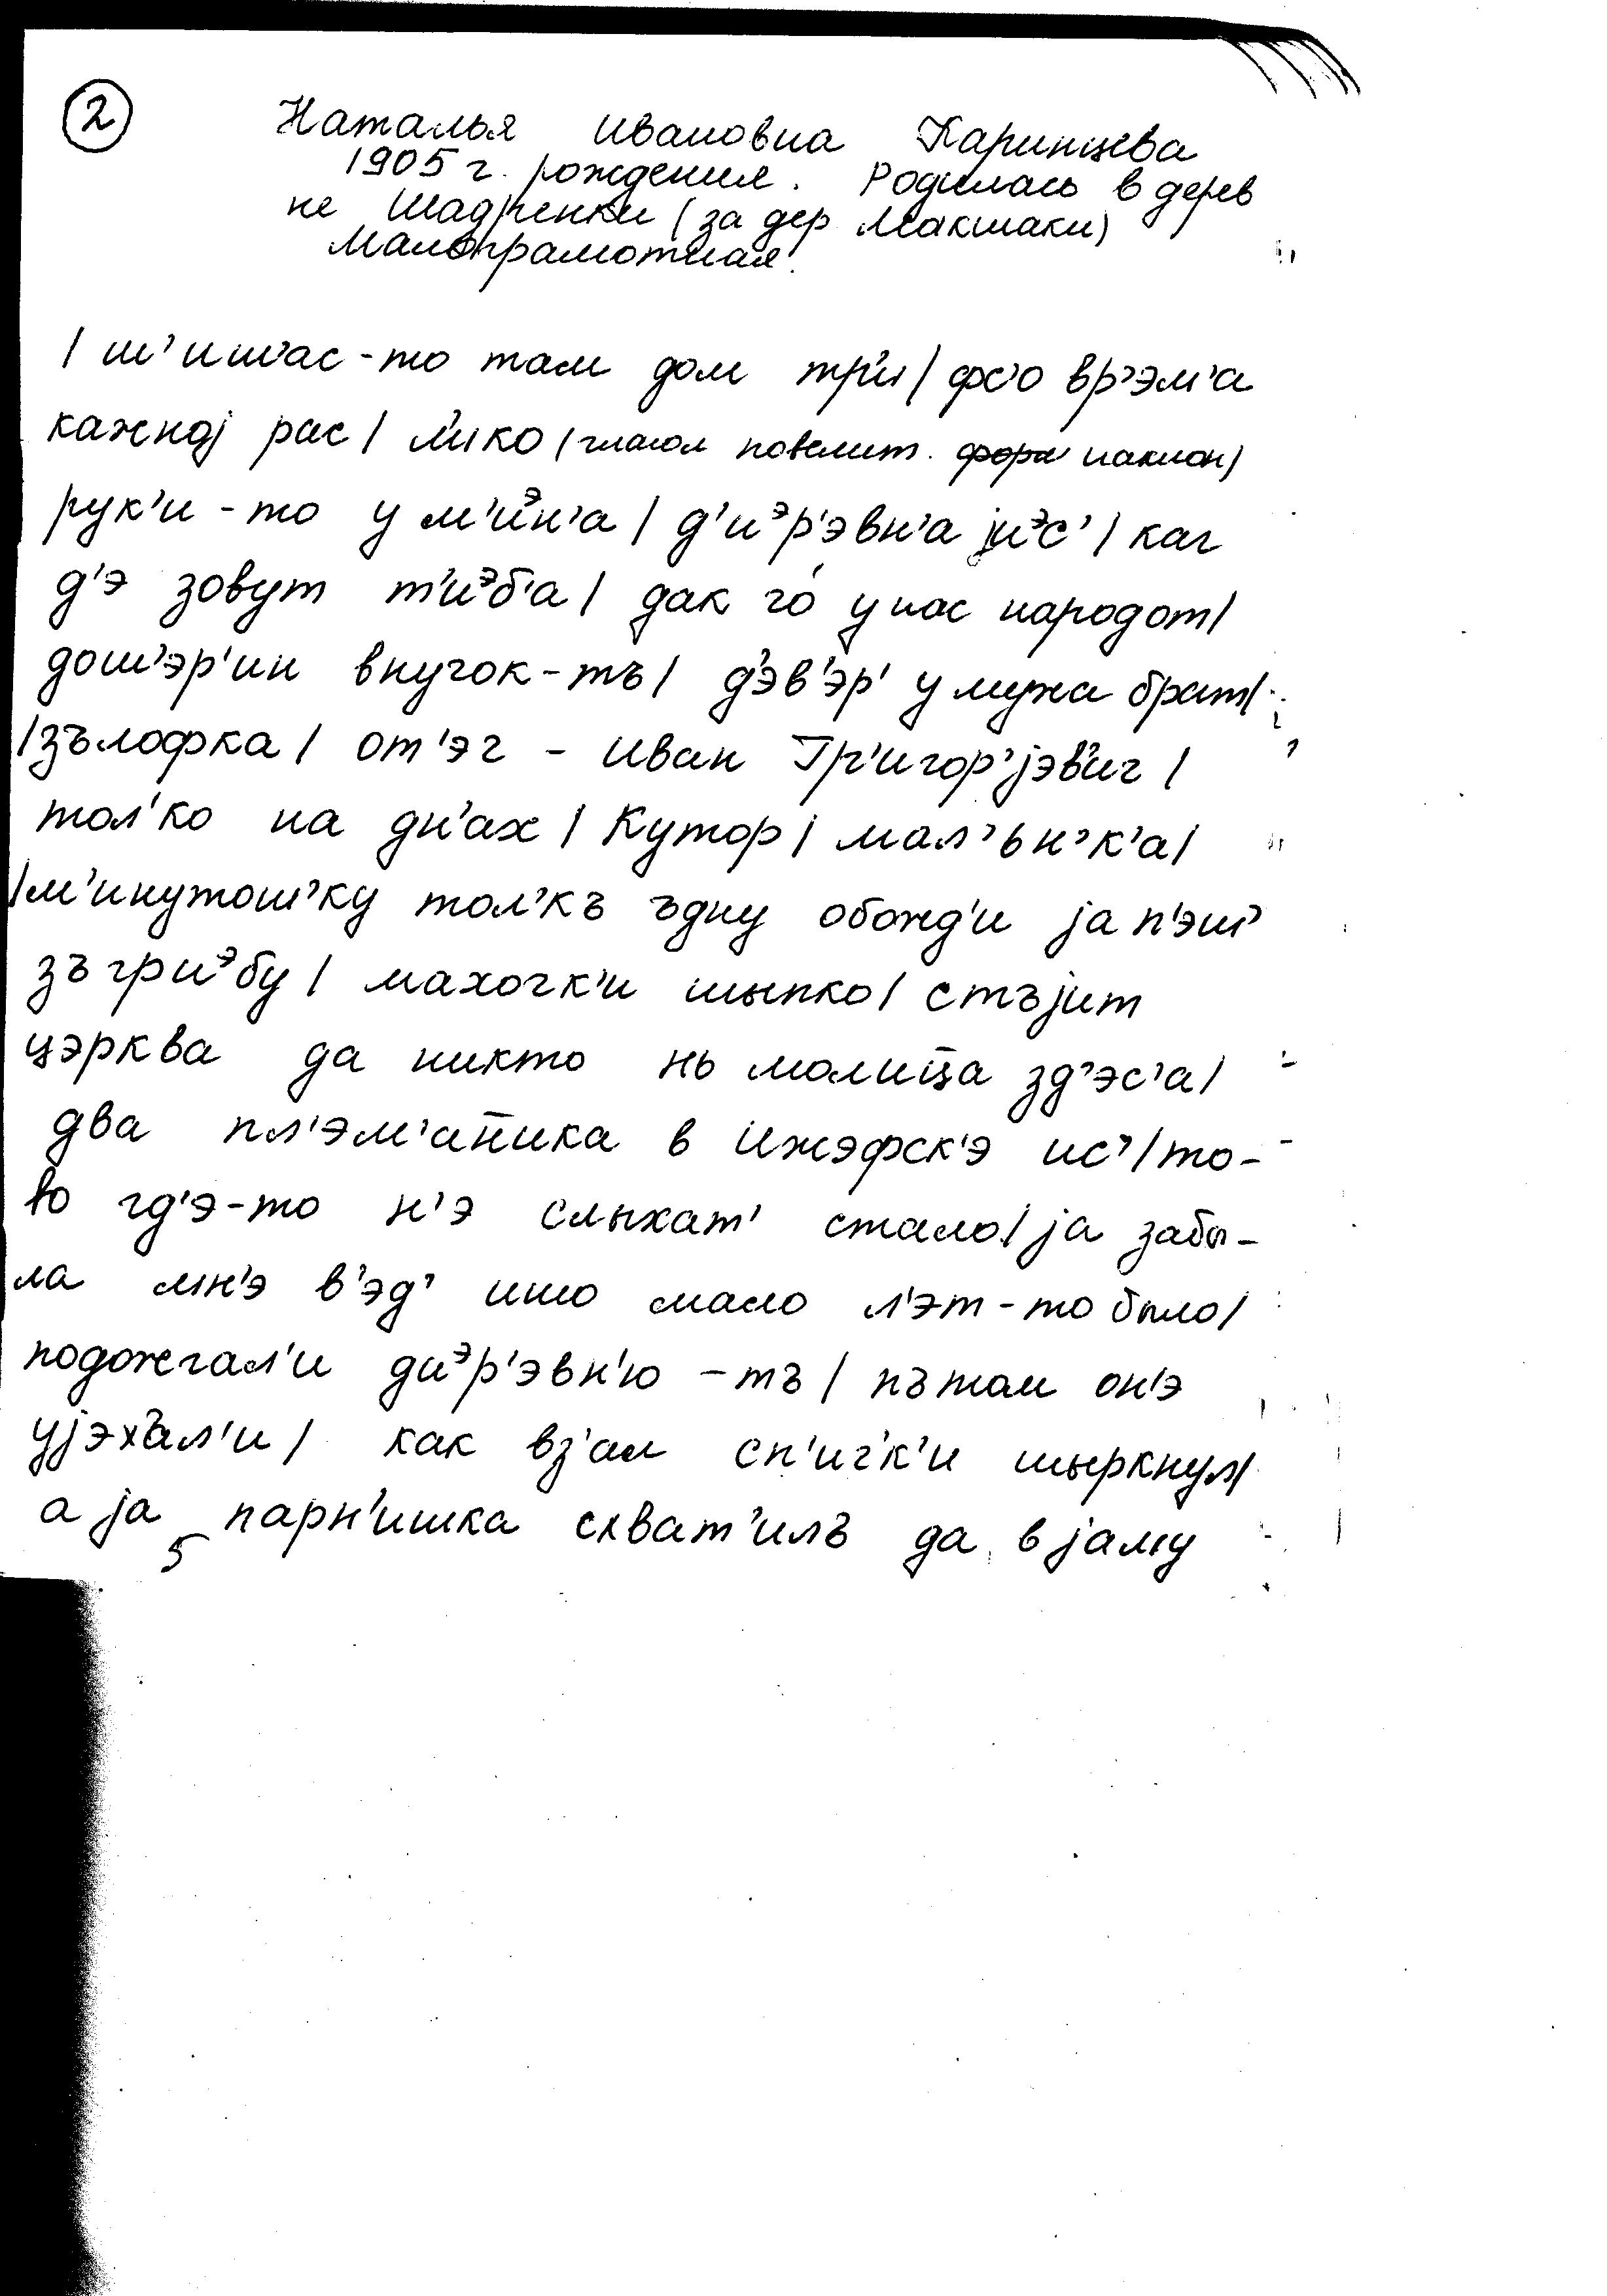 2
Наталья Ивановна Каринцева
1905 г. рождения. Родилась в дерев
не Шадренки (за дер Макшаки)
Малограмотная.
/ ш'иш'ас-то там дом тр'и / фс'о вр'эм'а
кажноj рас / л'ико (глагол повелит. форм наклон)
рук'и-то у м'иᵊн'а / д'иᵊр'эвн'а jиᵊс' / каг
д'э зовут т'иᵊб'а / дак го́ у нас народот /
дош'эр'ин внучок-тъ / д'эв'эр' у мужа брат /
/ зълофка / от'эч - Иван Гр'игор'jэв'ич /
тол'ко на дн'ах / Кутор / мал'ьн'к'а /
/ м'инутош'ку тол'къ ъдну обожд'и ja п'эш'
зъгриᵊбу / махочк'и шыпко / стъjит
цэрква да никто нь молиц̄а зд'эс'а /
два пл'эм'ан̄ика в Ижэфск'э ис' / то-
во гд'э-то н'э слыхат' стало / ja забы-
ла мн'э в'эд' ишо мало л'эт-то было /
подожгал'и диᵊр'эвн'ю-тъ / пътом он'э
уjэхъл'и / как вз'ал сп'ич'к'и шыркнул /
а ja парн'ишка схват'илъ да в jаму
5